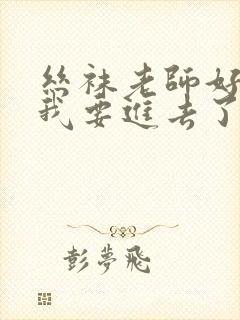 絲袜老師好
我要進去了
彭夢飛